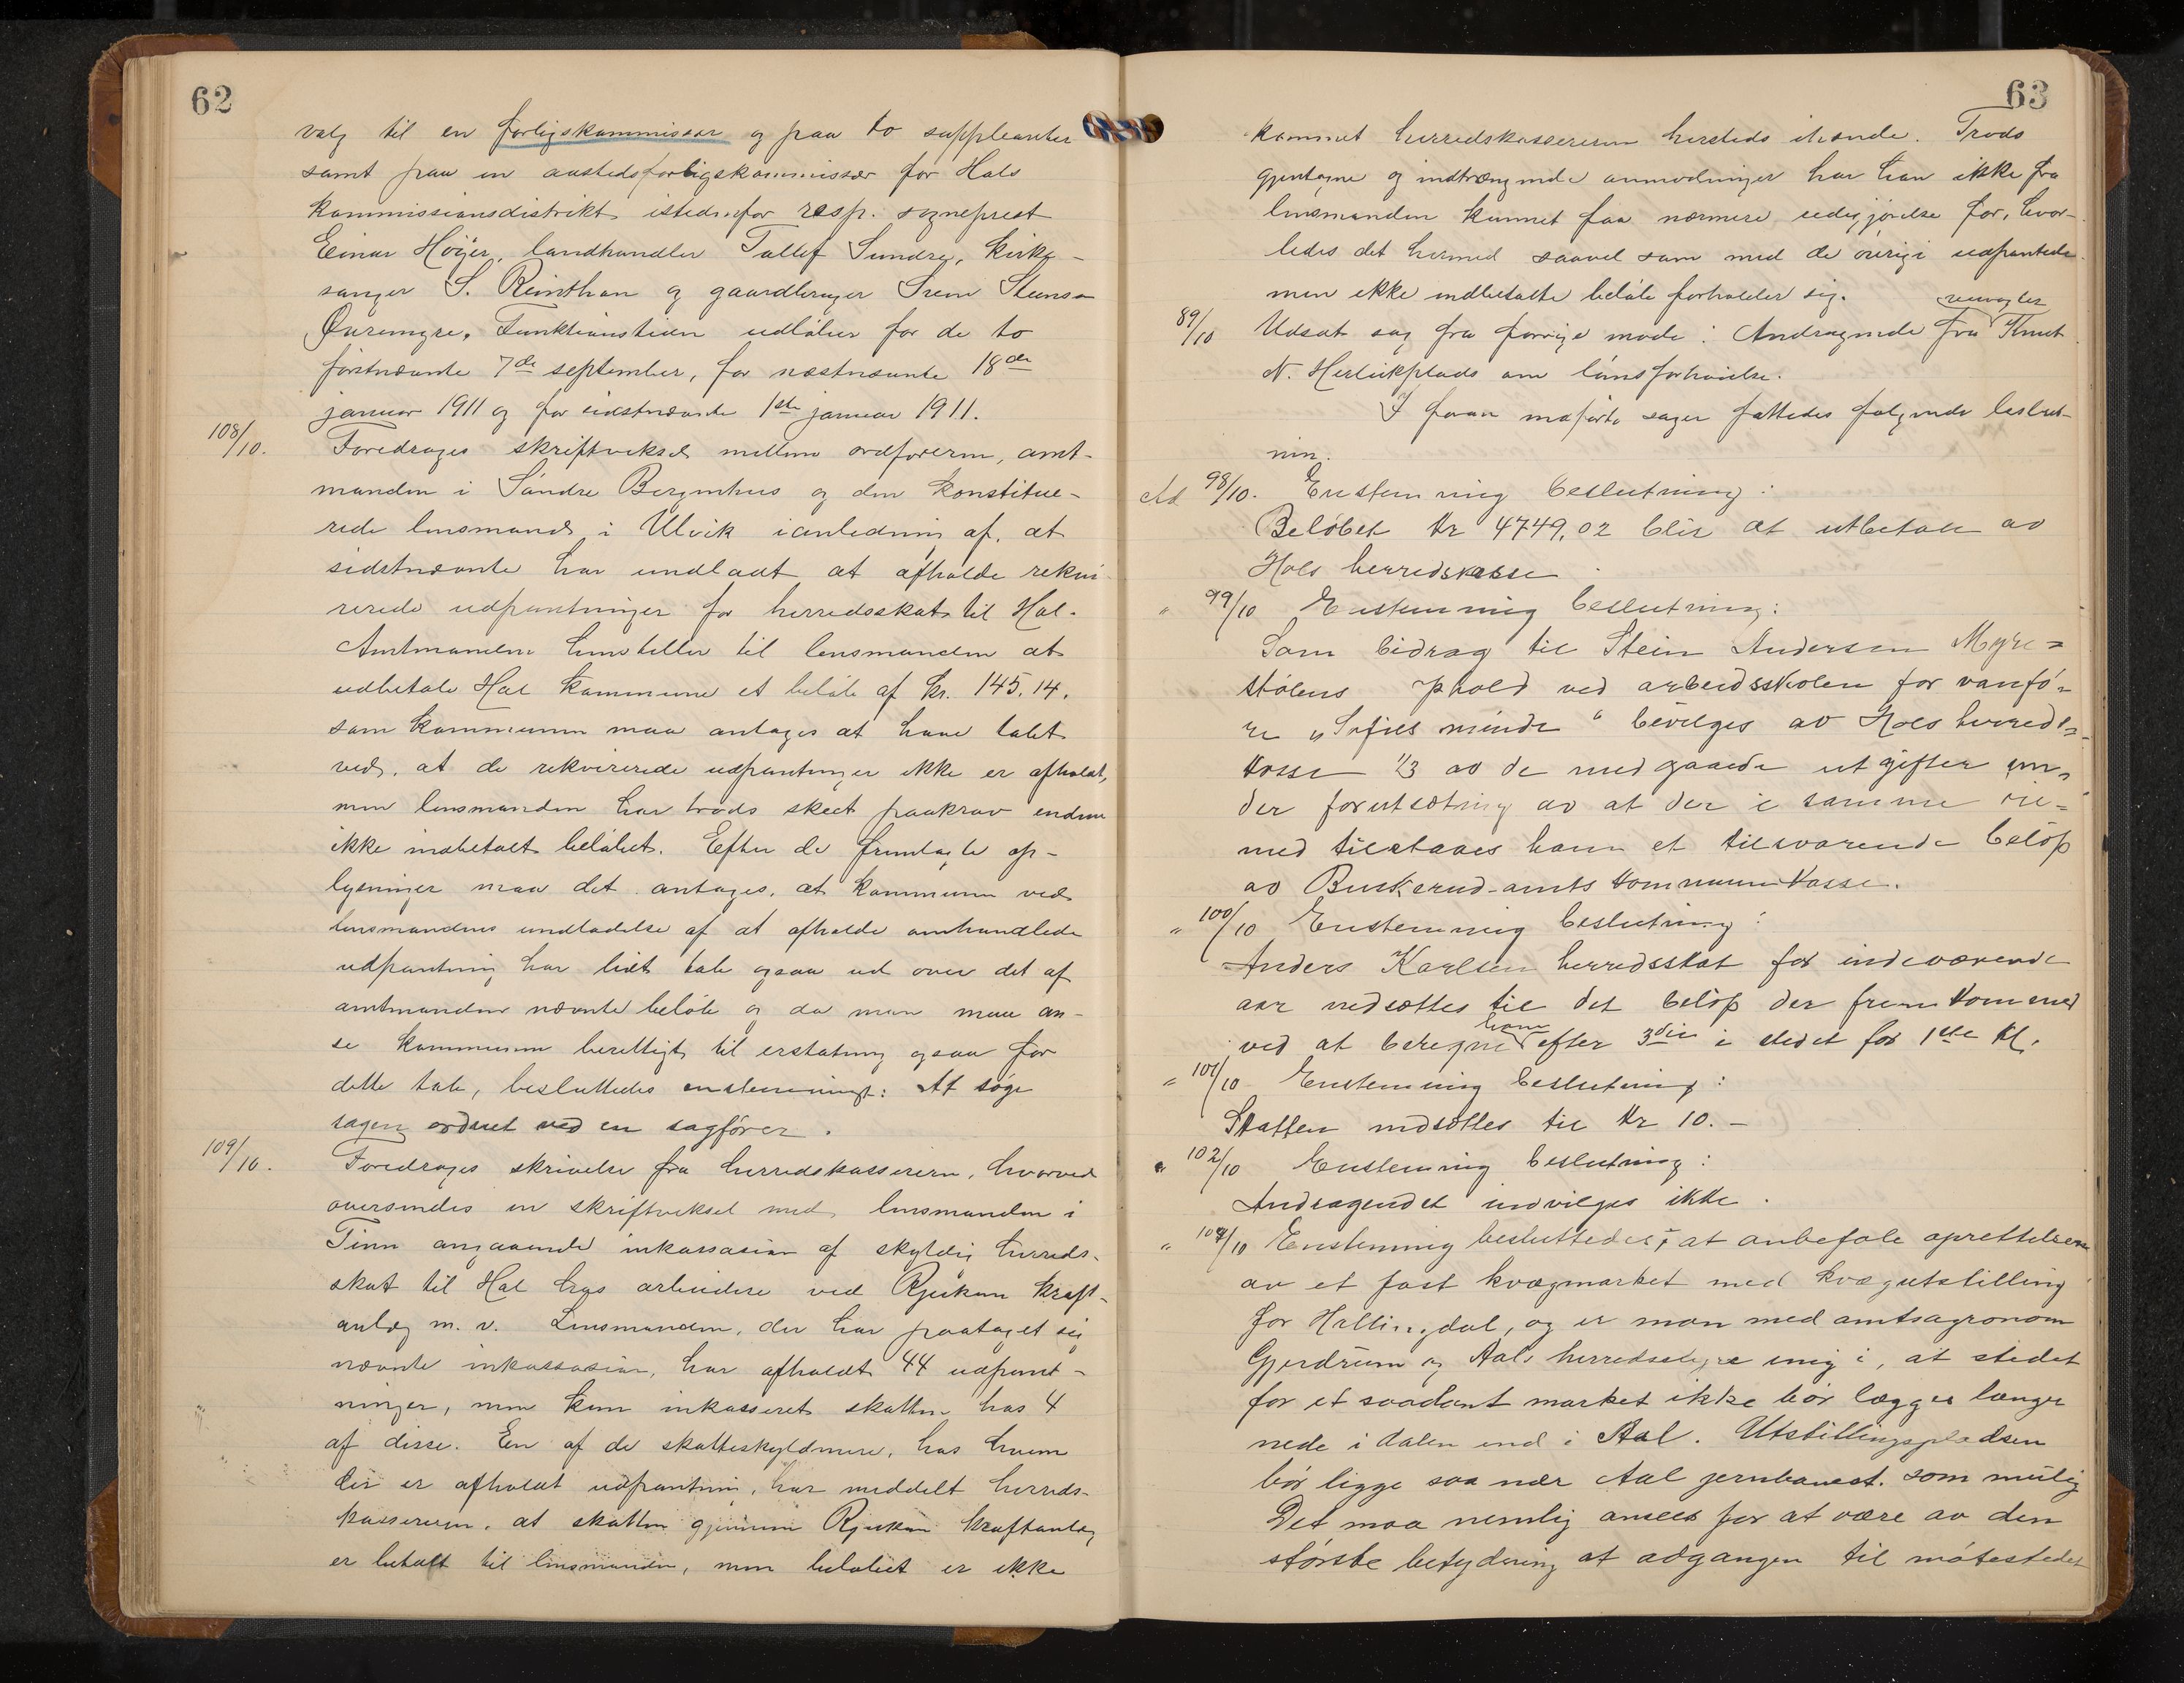 62
valg til en forligskommissær og paa to suppleanter
samt paa en aastedsforligskommissær for Hols
kommissionsdistrikt istedenfor resp. sogneprest
Einar Höyer, landhandler Tollef Sundre, kirke-
sanger S. Reinthon og gaardbruger Svein Steinsen
Funktionstiden udlöber for de to
förstnævnte 7de september, for næstnævnte 18de
januar 1911 og for sidstnævnte 1ste januar 1911.
108/10. Foredroges skriftveksel mellem ordföreren, amt-
manden i Söndre Bergenhus og den konstitue-
rede lensmand i Ulvik i anledning af, at
sidstnævnte har undladt at afholde rekvi-
rerede udpantninger for herredsskat til Hol.
Amtmanden henstiller til lensmanden at
udbetale Hol kommune et belöb af kr. 145.14,
som kommunen maa antages at have tabt
ved, at de rekvirerede udpantninger ikke er afholdt,
men lensmanden har trods skeet paakrav endnu
ikke indbetalt belöbet. Efter de fremlagte op-
lysninger maa det antages, at kommunen ved
lensmandens undladelse af at afholde omhandlede
udpantning har lidt tab ogsaa ud over det af
amtmanden nævnte belöb og da man maa an-
se kommunen berettiget til erstatning ogsaa for
dette tab, besluttedes enstemmigt: At söge
sagen ordnet ved en sagförer.
109/10. Foredroges skrivelse fra herredskassereren, hvorved
oversendes en skriftveksel med lensmanden i
Tinn angaaende inkassasion af skyldig herreds-
skat til Hol hos arbeidere ved Rjukan kraft-
anlæg m. v. Lensmanden, der har paataget sig
nævnte inkassasion, har afholdt 44 udpant-
ninger, men kun inkasseret skatten hos 4
af disse. En af de skatteskyldnere, hos hvem
der er afholdt udpantning, har meddelt herreds-
kassereren, at skatten gjennem Rjukan kraftanlæg
er betalt til lensmanden, men belöbet er ikke
63
kommet herredskassereren hersteds ihænde. Trods
gjentagne og indtrængende anmodninger har han ikke fra
lensmanden kunnet faa nærmere redegjörelse for, hvor-
ledes det hermed saavel som med de övrige udpantede
men ikke indbetalte belöb forholder sig.
89/10 Udsat sag fra forrige möde: Andragende fra veivogter Knut
N. Herleikplads om lönsforhöielse.
I foran anförte sager fattedes fölgende beslut-
nin.
Ad 98/10. Enstemmig beslutning:
Belöbet kr 4749,02 blir at utbetale av
Hols herredskasse.
" 99/10 Enstemmig beslutning:
Som bidrag til Stein Andersen Myre-
stölens ophold ved arbeidsskolen for vanfö-
re "Sofies minde" bevilges av Hols herreds-
kasse 1/3 av de medgaaede utgifter un-
der forutsætning av at der i samme öie-
med tilstaaes ham et tilsvarende belöp
av Buskerud amts kommunekasse.
" 100/10 Enstemmig beslutning:
Anders Karlsen herredsskat for indeværende
aar nedsættes til det belöp der fremkommer
ved at beregne ham efter 3die i stedet for 1ste kl.
" 101/10 Enstemmig beslutning:
Skatten nedsættes til kr 10.-
" 102/10 Enstemmig beslutning:
Andragendet indvilges ikke.
" 104/10 Enstemmig besluttedes, at anbefale oprettelsen
av et fast kvægmarket med kvægutstilling
for Hallingdal, og er man med amtsagronom
Gjerdrum og Aals herredsstyre enig i, at stedet
for et saadant market ikke bör lægges længer
nede i dalen end i Aal. Utstillingspladsen
bör ligge saa nær Aal jernbanest. som mulig
Det maa nemlig ansees for at være av den
störste betydning at adgangen til mötestedet